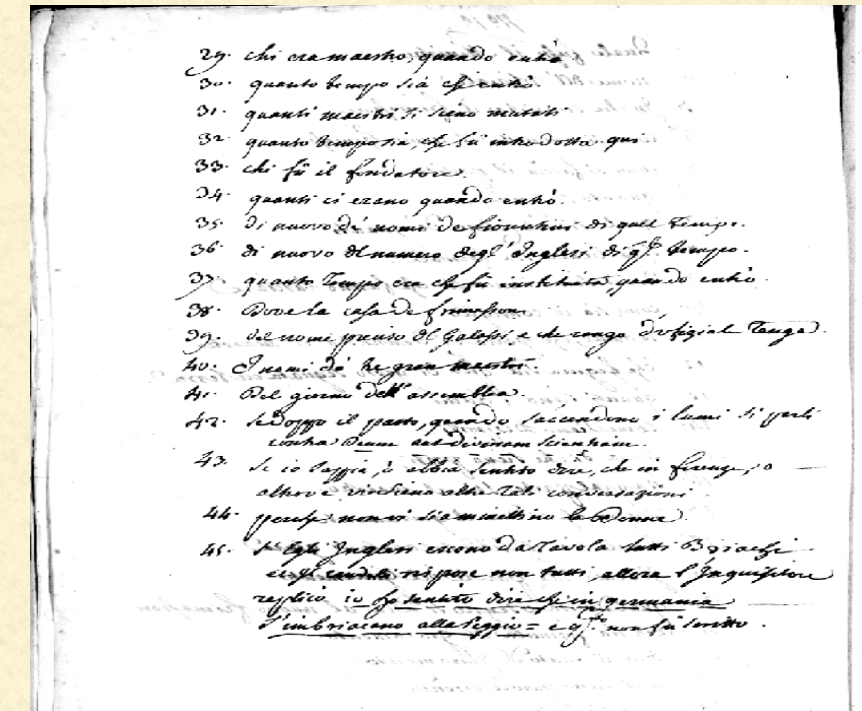 29. chi era maestro, quando entrò
30. quanto tempo sia che entrò
31. quanti maestri si sieno mutati
32. quanto tempo sia, che fù introdotta qui
33. chi fù il fondatore.
34. quanti ci erano quando entrò.
35. di nuovo de' nomi de fiorentini di quel tempo.
36. di nuovo del numero degl' Inglesi di q.l tempo.
37. quanto tempo era che fù instituita, quando entrò.
38. Dove la casa de
39. del nome preciso del e che rango d'ofizial tenga.
40. I nomi de tre gran maestri
41. Del giorno dell' assemblea.
42. se doppo il pasto, quando s'accendono i lumi si parli
contra Deum aut divinam scientiam.
43. se io sappia, ò abbia sentito dire, che in firenze, o
altrove vi siano altre tali conversazioni
44. perche non vi si amettino le Donne.
45. s' Egli Inglesi escono da Tavola tutti Briachi
rispose non tutti, allora l'Inquisitore
replicò io hò sentito dire che in germania
s'imbriacano alla peggio = e q.to non fù scritto.